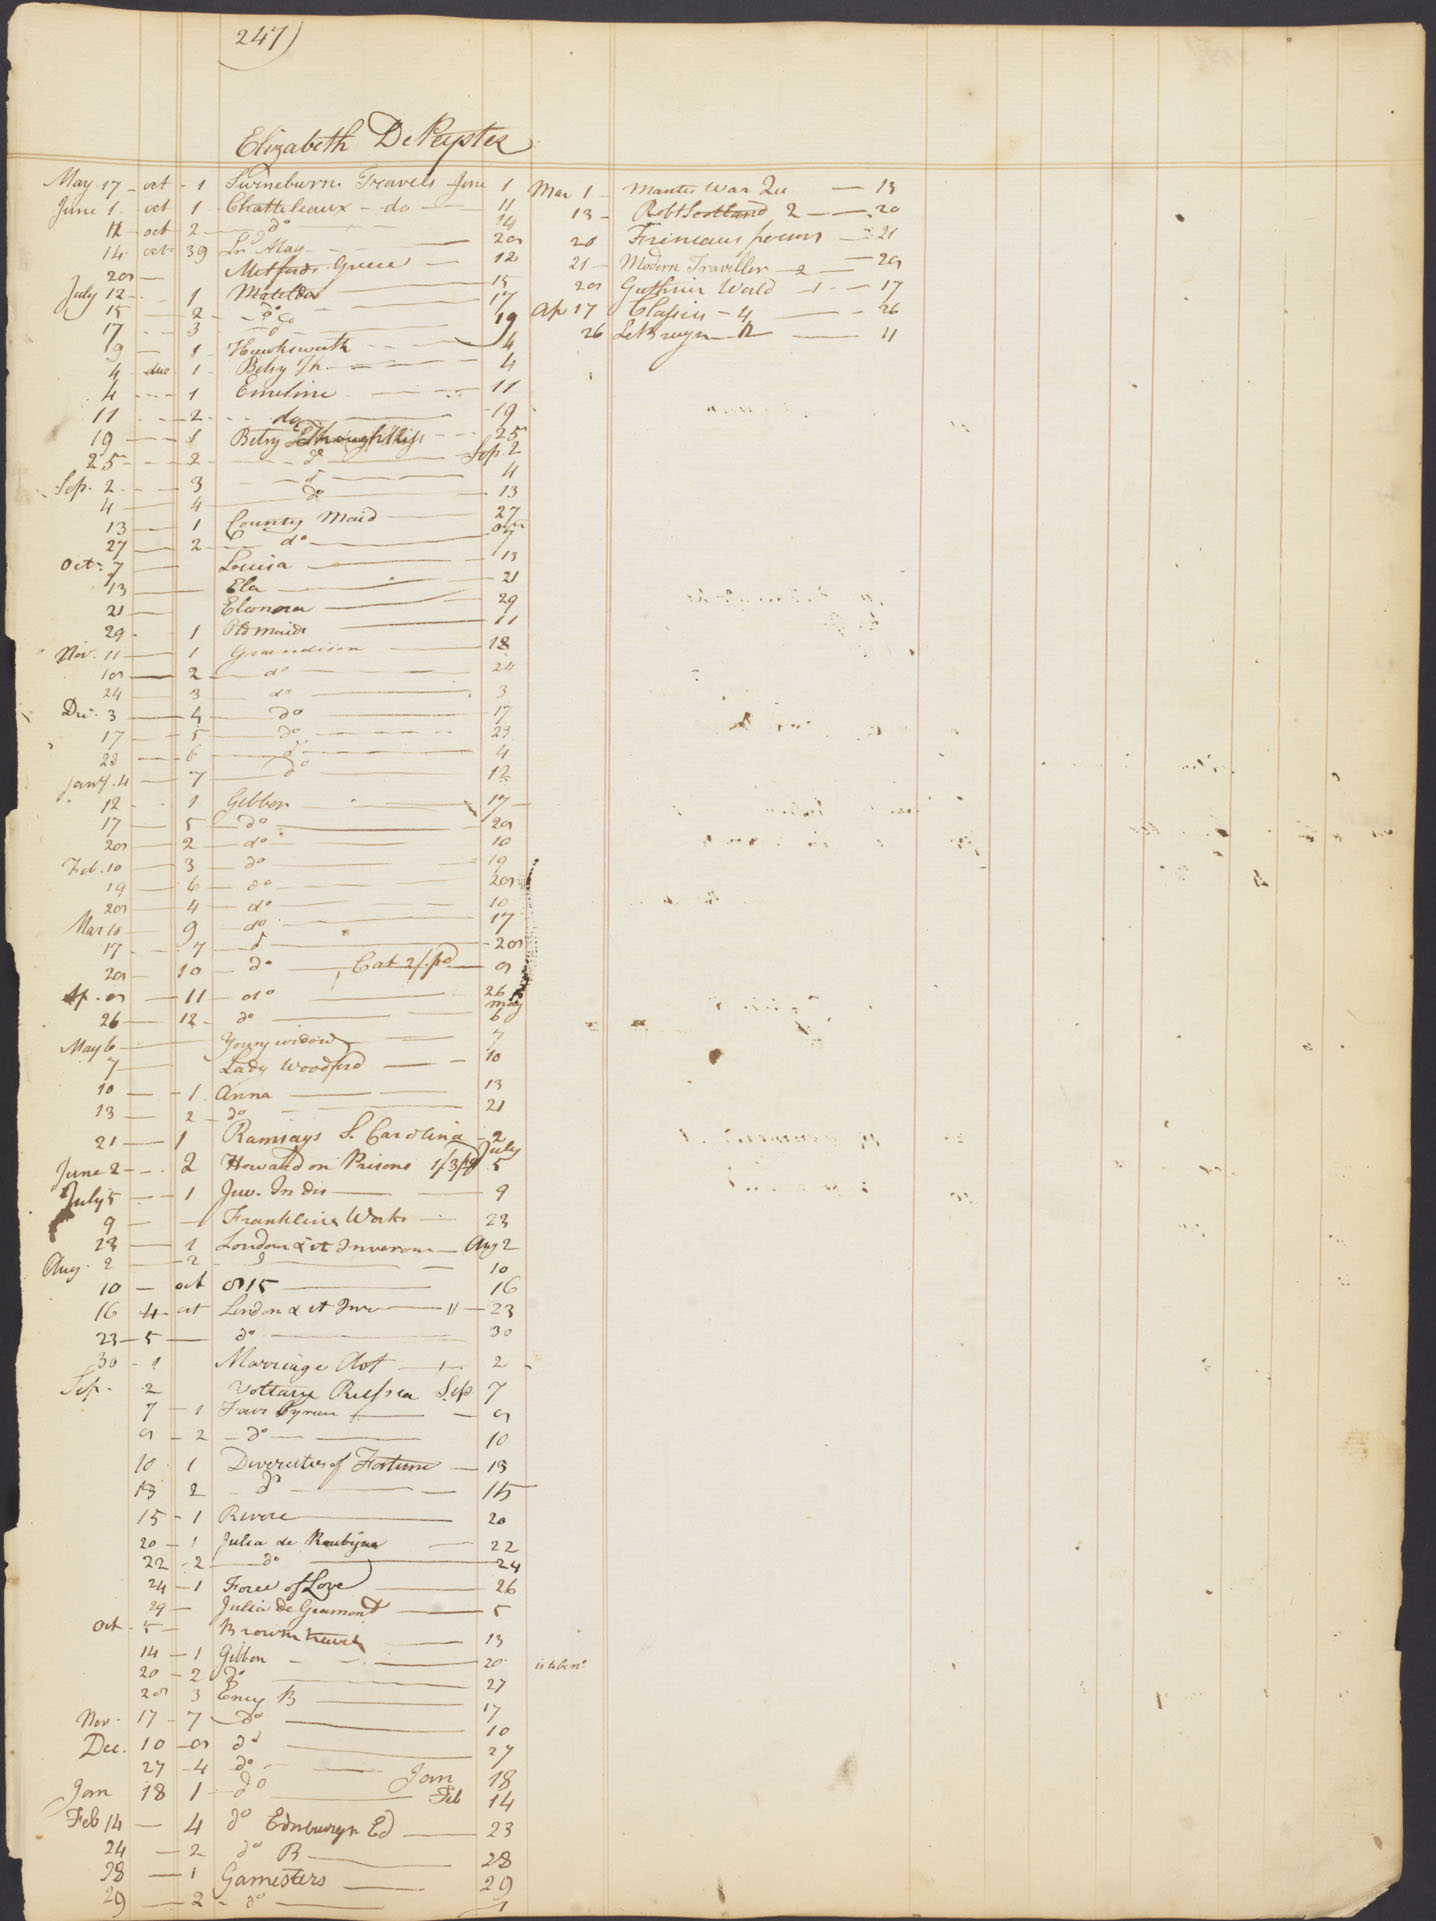 247)
Elizabeth DePeyster
May. 17 - oct - 1 Swineburns Travels June 1
June 1 oct 1 - Chatteleaux - do 11
12 oct 2 - do 14
14 oct 39 Ln Mag 28
28 Metfords Greece 12
July 12 1 Matelda 15
15 - 2 - do 17
17 - 3 - do 19
19 1 Hawksworth 4
4 duo 1 Betsy Th. 4
4 1 Emeline 11
11 2 do 19
19 1 Betsy Thoughtless 25
25 2 do Sep. 2
Sep. 2 3 do 4
4 4 do 13
13 1 County Maid 27
27 2 do 7
Octr. 7 Louisa 13
13 Ela 21
21 Eleonora 29
29 1 Old maids 11
Nov. 11 1 Grandison 18
18 2 do 24
24 3 do 3
Dec. 3 4 do 17
17 5 do 23
23 6 do 4
Jany. 4 7 do 12
12 1 Gibbon 17
17 5 do 28
28 2 do 10
Feb. 10 3 do 19
19 6 do 28
28 4 do 10
Mar 10 9 do 17
17 7 do 28
28 10 do Cat 2/. pd 8
Ap. 8 11 do 26
26 12 do may 6
May 6 Young widow 7
7 Lady Woodford 10
10 1 Anna 13
13 2 do 21
21 1 Ramsays S. Carolina 2
June 2 2 Howard on Prisons 1/3 pd July 5
July 5 1 Juv. Indis 9
9 Franklins Works 23
23 1 London & it Inverons Aug 2
Aug. 2 2 do 10
10 oct 815 16
16 4 oct London & it Inv 11 23
23 5 do 30
30 1 Marriage Act 2
Sep. 2 Voltaire Russia Sep 7
7 1 Fair Syrian 8
8 2 do 10
10 1 Diversities of Fortune 13
13 2 do 15
15 1 Revere 20
20 1 Julia de Roubigne 22
22 2 do 24
24 1 Force of Love 26
29 Julia de Gramont 5
Oct. 5 Browns travels 13
14 1 Gibbon 20
20 2 do 27
28 3 Ency B 17
Nov. 17 7 do 10
Dec. 10 8 do 27
27 4 do Jan 18
Jan 18 1 do Feb 14
Feb 14 4 do Edinburgh Ed 23
24 2 do B 28
28 1 Gamesters 29
29 2 do 1
Mar 1 Mantes War Qu 13
13 Robt Scotland 2 20
20 Freneaus poems 21
21 Modern Traveller 2 28
28 Guthries World 1 17
Ap 17 Classics 4 26
26 LeBruyn 2 11